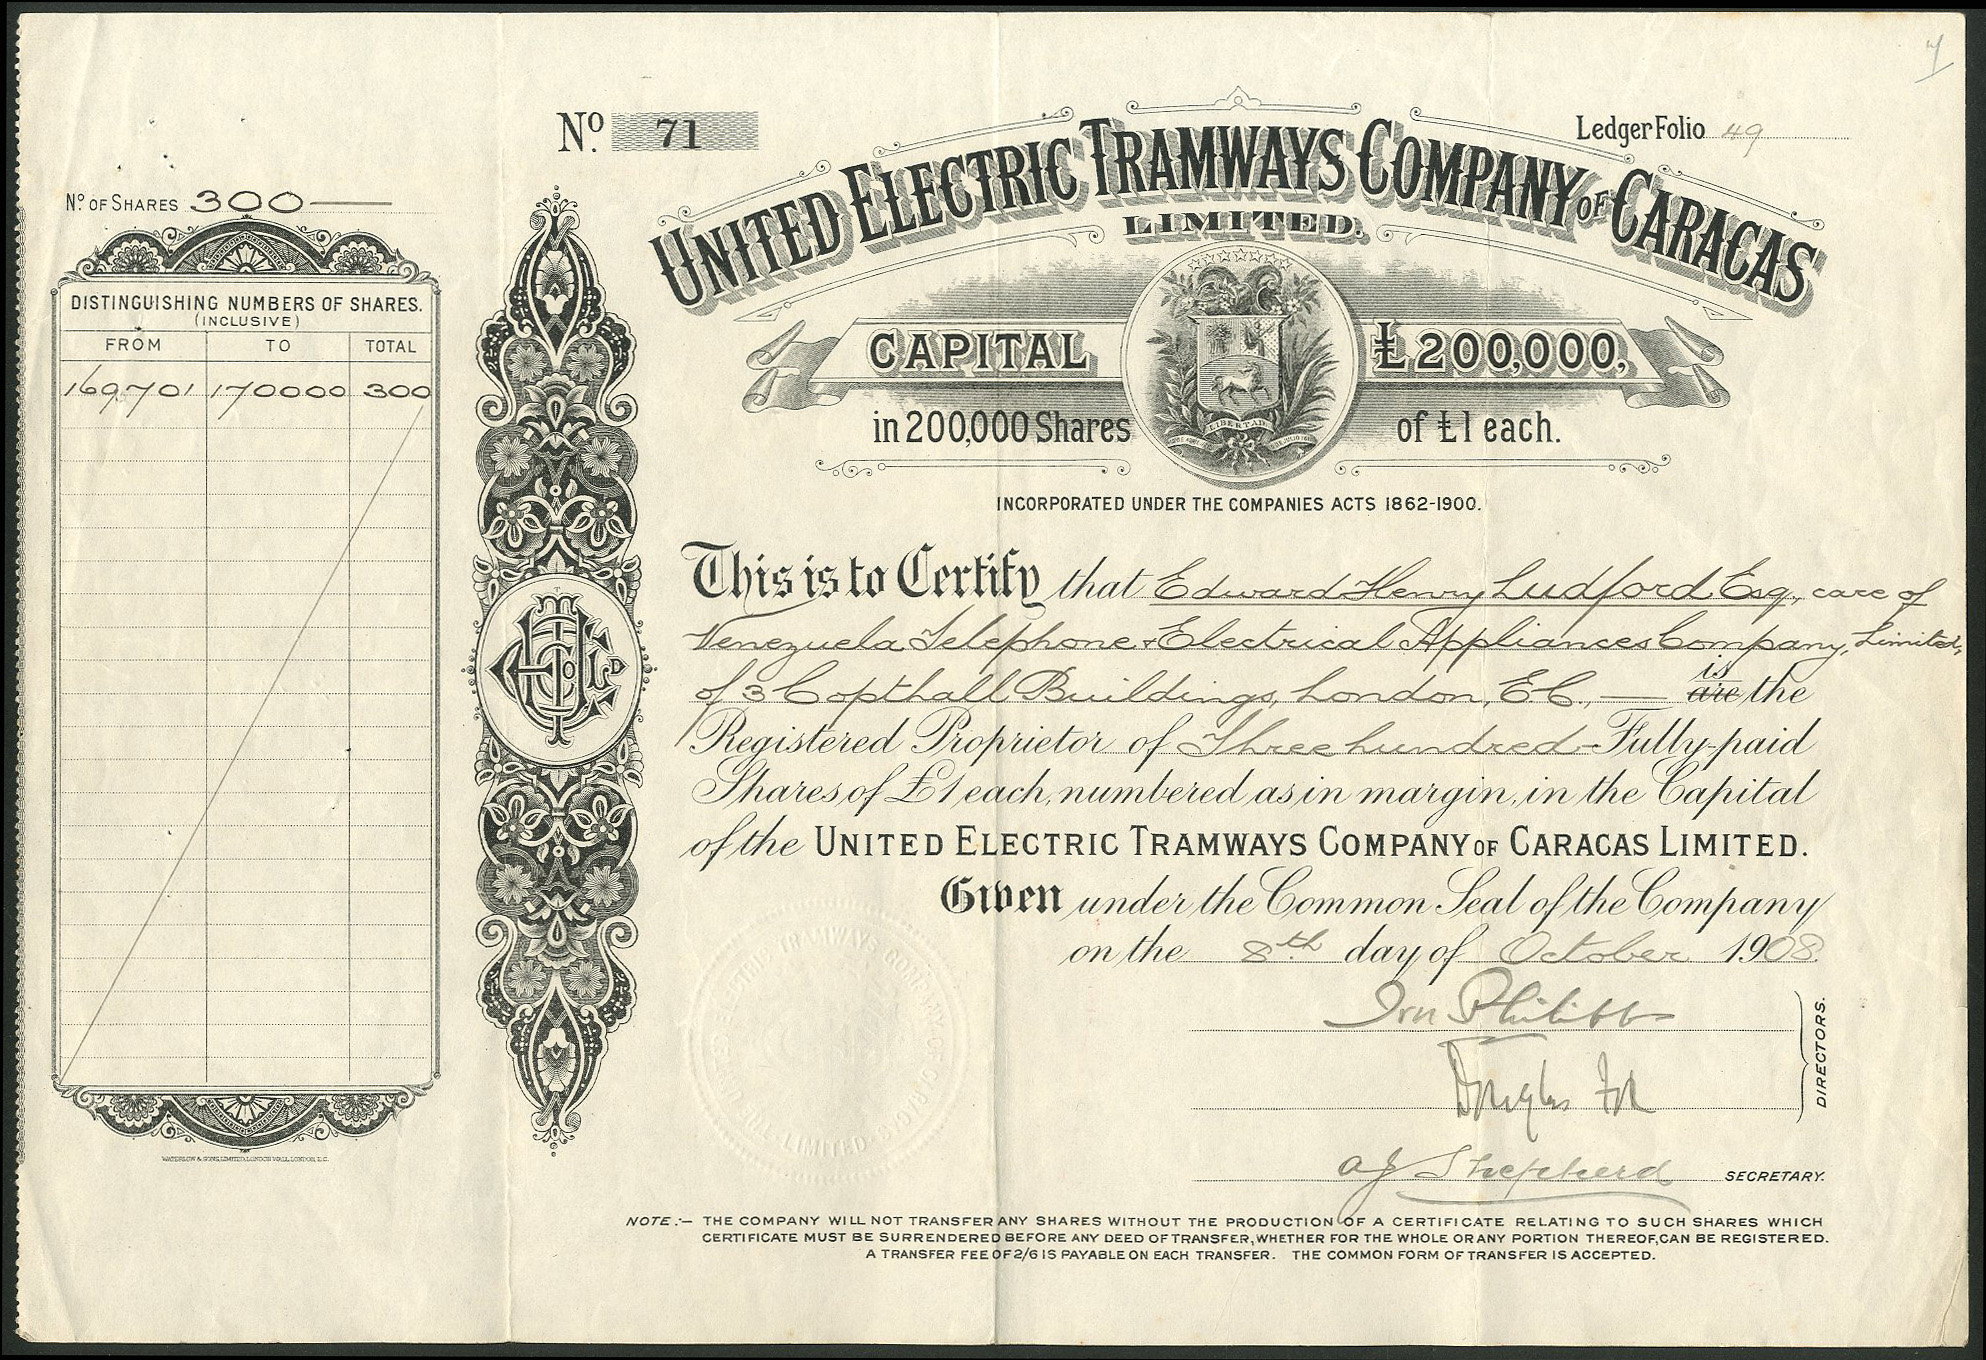 No 71
Ledger Folio 49
No. OF SHARES 300
UNITED ELECTRIC TRAMWAYS COMPANY OF CARACAS
LIMITED.
CAPITAL £200,000,
in 200,000 Shares of £1 each.
LIBERTAD
INCORPORATED UNDER THE COMPANIES ACTS 1862-1900.
DISTINGUISHING NUMBERS OF SHARES.
(INCLUSIVE)
FROM TO TOTAL
169,701 170000 300
This is to Certify that Edward Henry Ludford Esq, care of
Venezuela Telephone & Electrical Appliances Company, Limited,
of 3 Copthall Buildings, London, E.C., — are is the
Registered Proprietor of Three hundred Fully-paid
Shares of £1 each, numbered as in margin, in the Capital
of the UNITED ELECTRIC TRAMWAYS COMPANY OF CARACAS LIMITED.
Given under the Common Seal of the Company
on the 8th day of October 1908.
DIRECTORS.
Douglas Fox
A J Shepherd SECRETARY.
TRAMWAYS COMPANY OF CARACAS LIMITED
WATERLOW & SONS LIMITED, LONDON WALL, LONDON, E.C.
NOTE:— THE COMPANY WILL NOT TRANSFER ANY SHARES WITHOUT THE PRODUCTION OF A CERTIFICATE RELATING TO SUCH SHARES WHICH
CERTIFICATE MUST BE SURRENDERED BEFORE ANY DEED OF TRANSFER, WHETHER FOR THE WHOLE OR ANY PORTION THEREOF, CAN BE REGISTERED.
A TRANSFER FEE OF 2/6 IS PAYABLE ON EACH TRANSFER. THE COMMON FORM OF TRANSFER IS ACCEPTED.